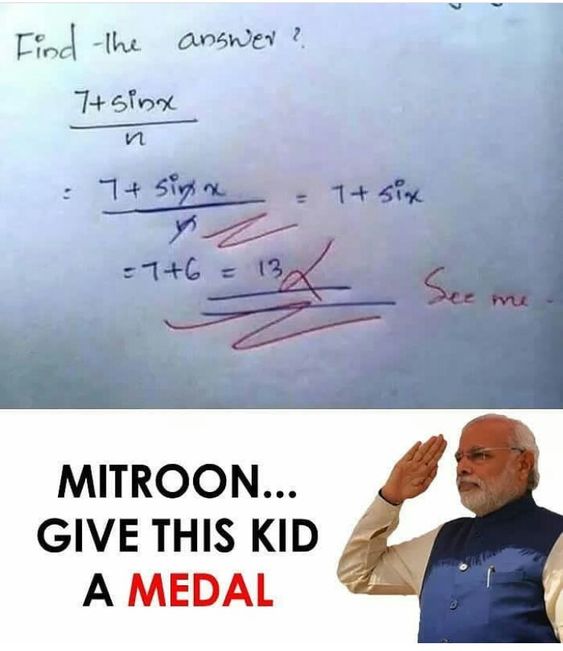 Find the answer?
7+sinx
n
= 7+ sinx = 7+ six
n
=7+6 = 13
See me
MITROON...
GIVE THIS KID
A MEDAL